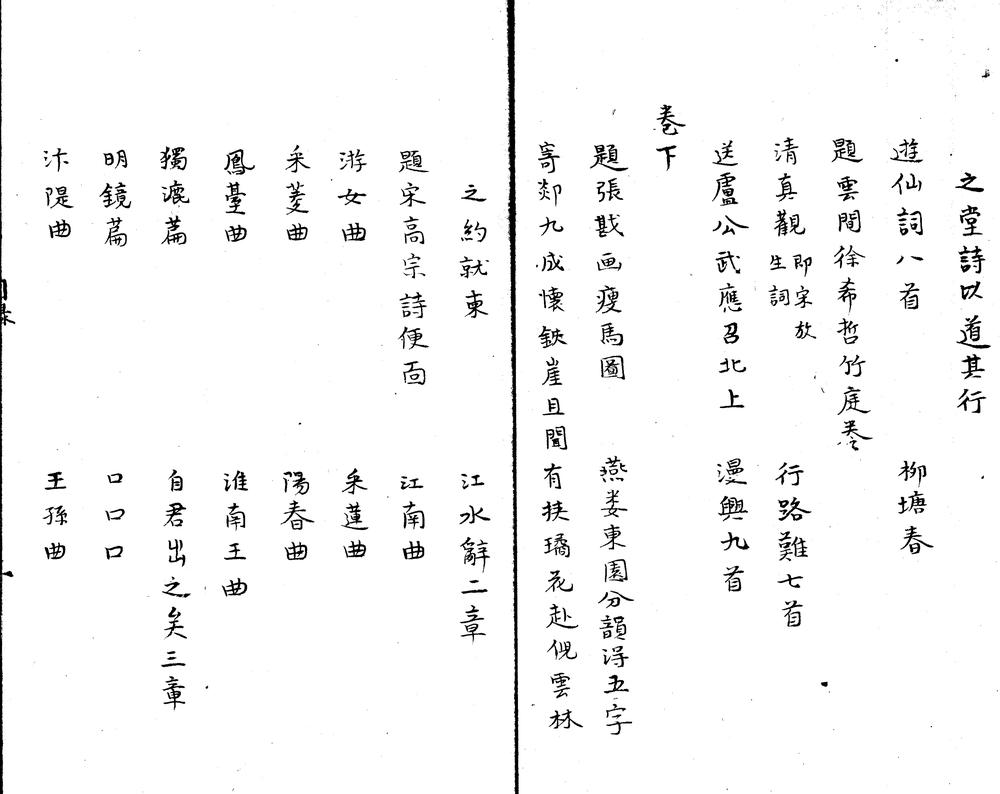 之堂詩以道其行
遊仙詞八首 柳塘春
題雲間徐希哲竹庭卷
清真觀即宋放生詞 行路難七首
送盧公武應召北上 漫興九首
卷下
題張戡画瘦馬圖 燕娄東園分韻得五字
寄郯九成懷鉄崖且聞有挟瓊花赴倪雲林
之約就東 江水辭二章
題宋高宗詩便面 江南曲
游女曲 采蓮曲
采菱曲 陽春曲
鳳臺曲 淮南王曲
獨漉篇 自君出之矣三章
明鏡篇 口口口
汴隄曲 王孫曲